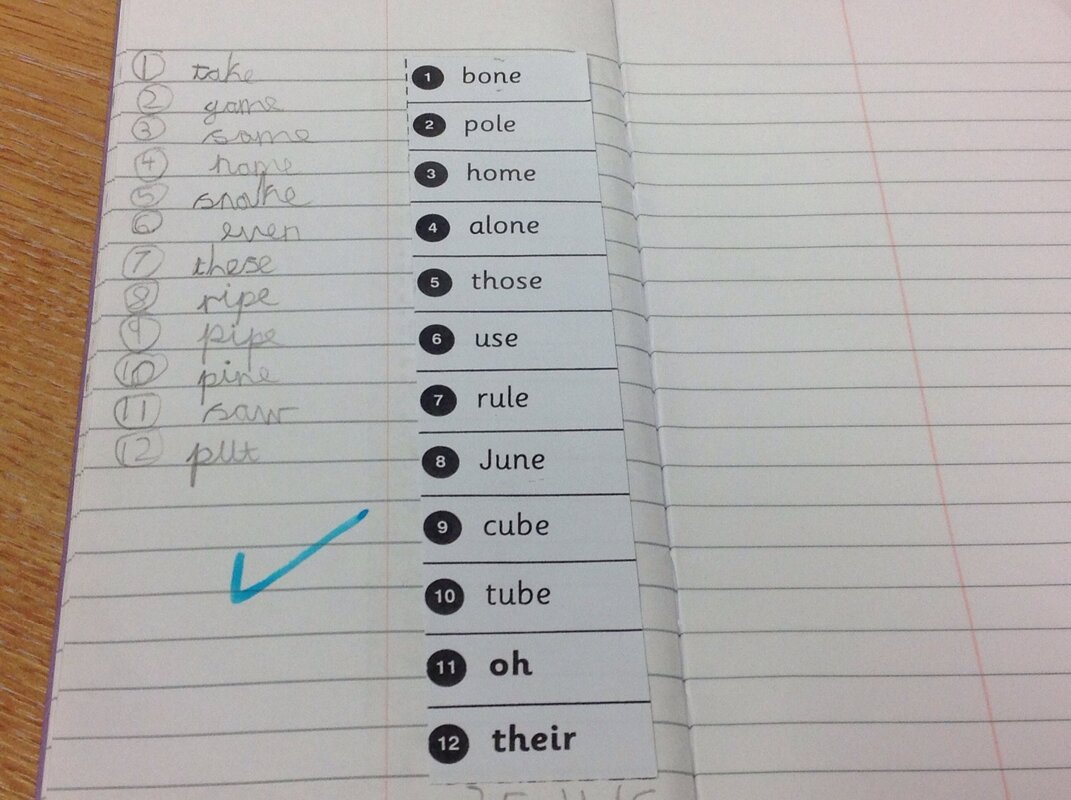 1 take
2 game
3 same
4 name
5 snake
6 even
7 these
8 ripe
9 pipe
10 pine
11 saw
12 put
1 bone
2 pole
3 home
4 alone
5 those
6 use
7 rule
8 June
9 cube
10 tube
11 oh
12 their